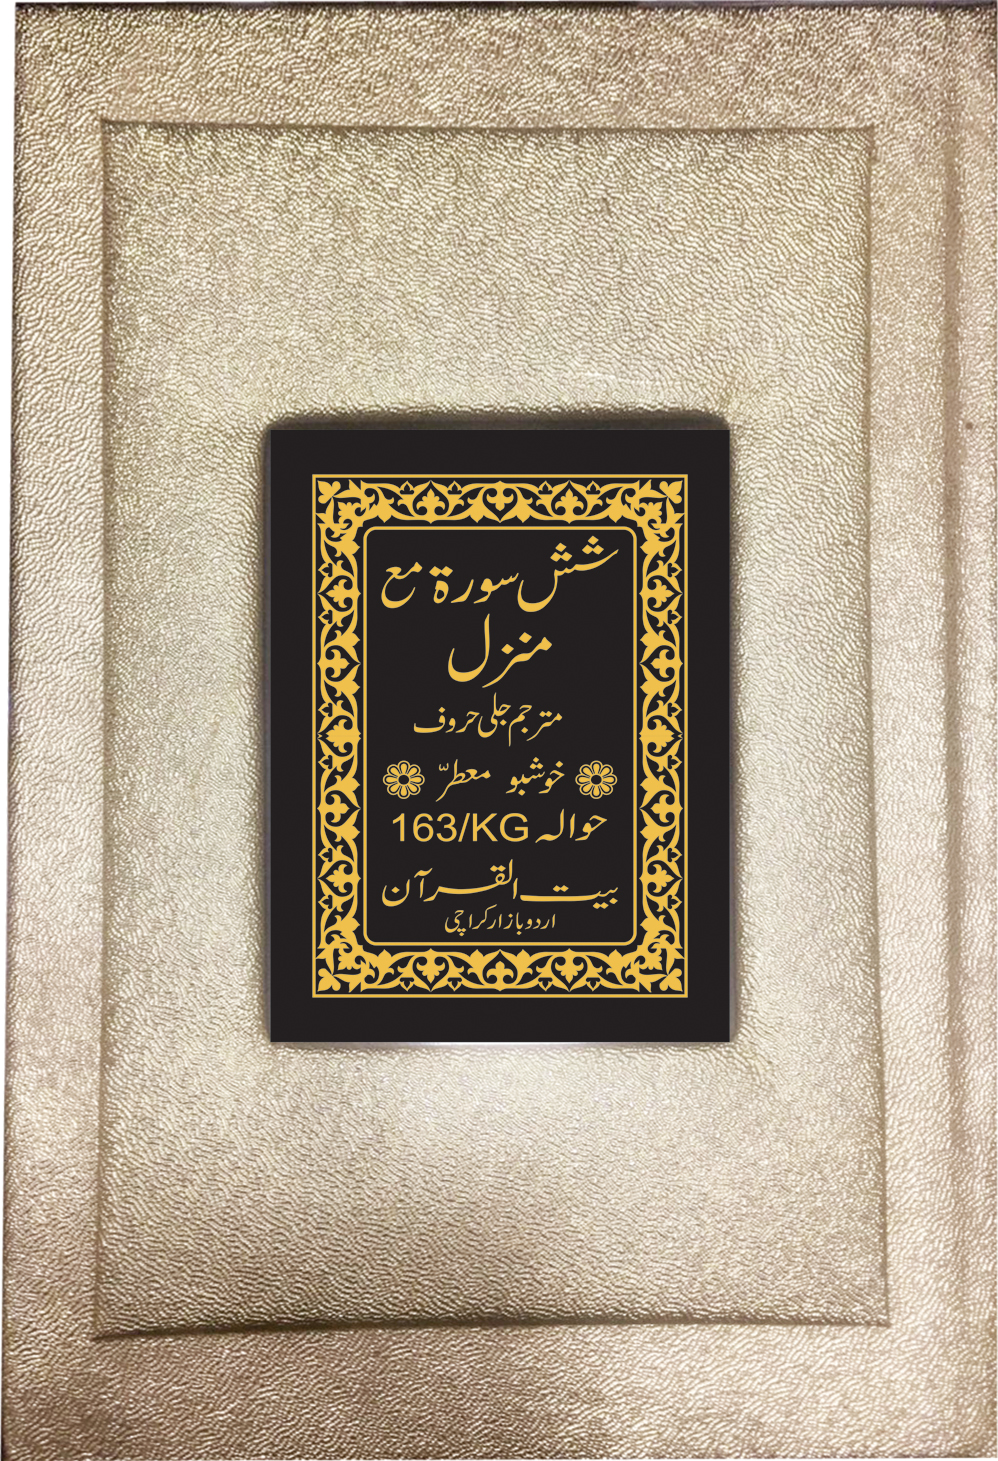 شش سورۃ مع
منزل
مترجم جلی حروف
خوشبو معطرّ
حوالہ 163/KG
بیت القرآن
اردو بازار کراچی